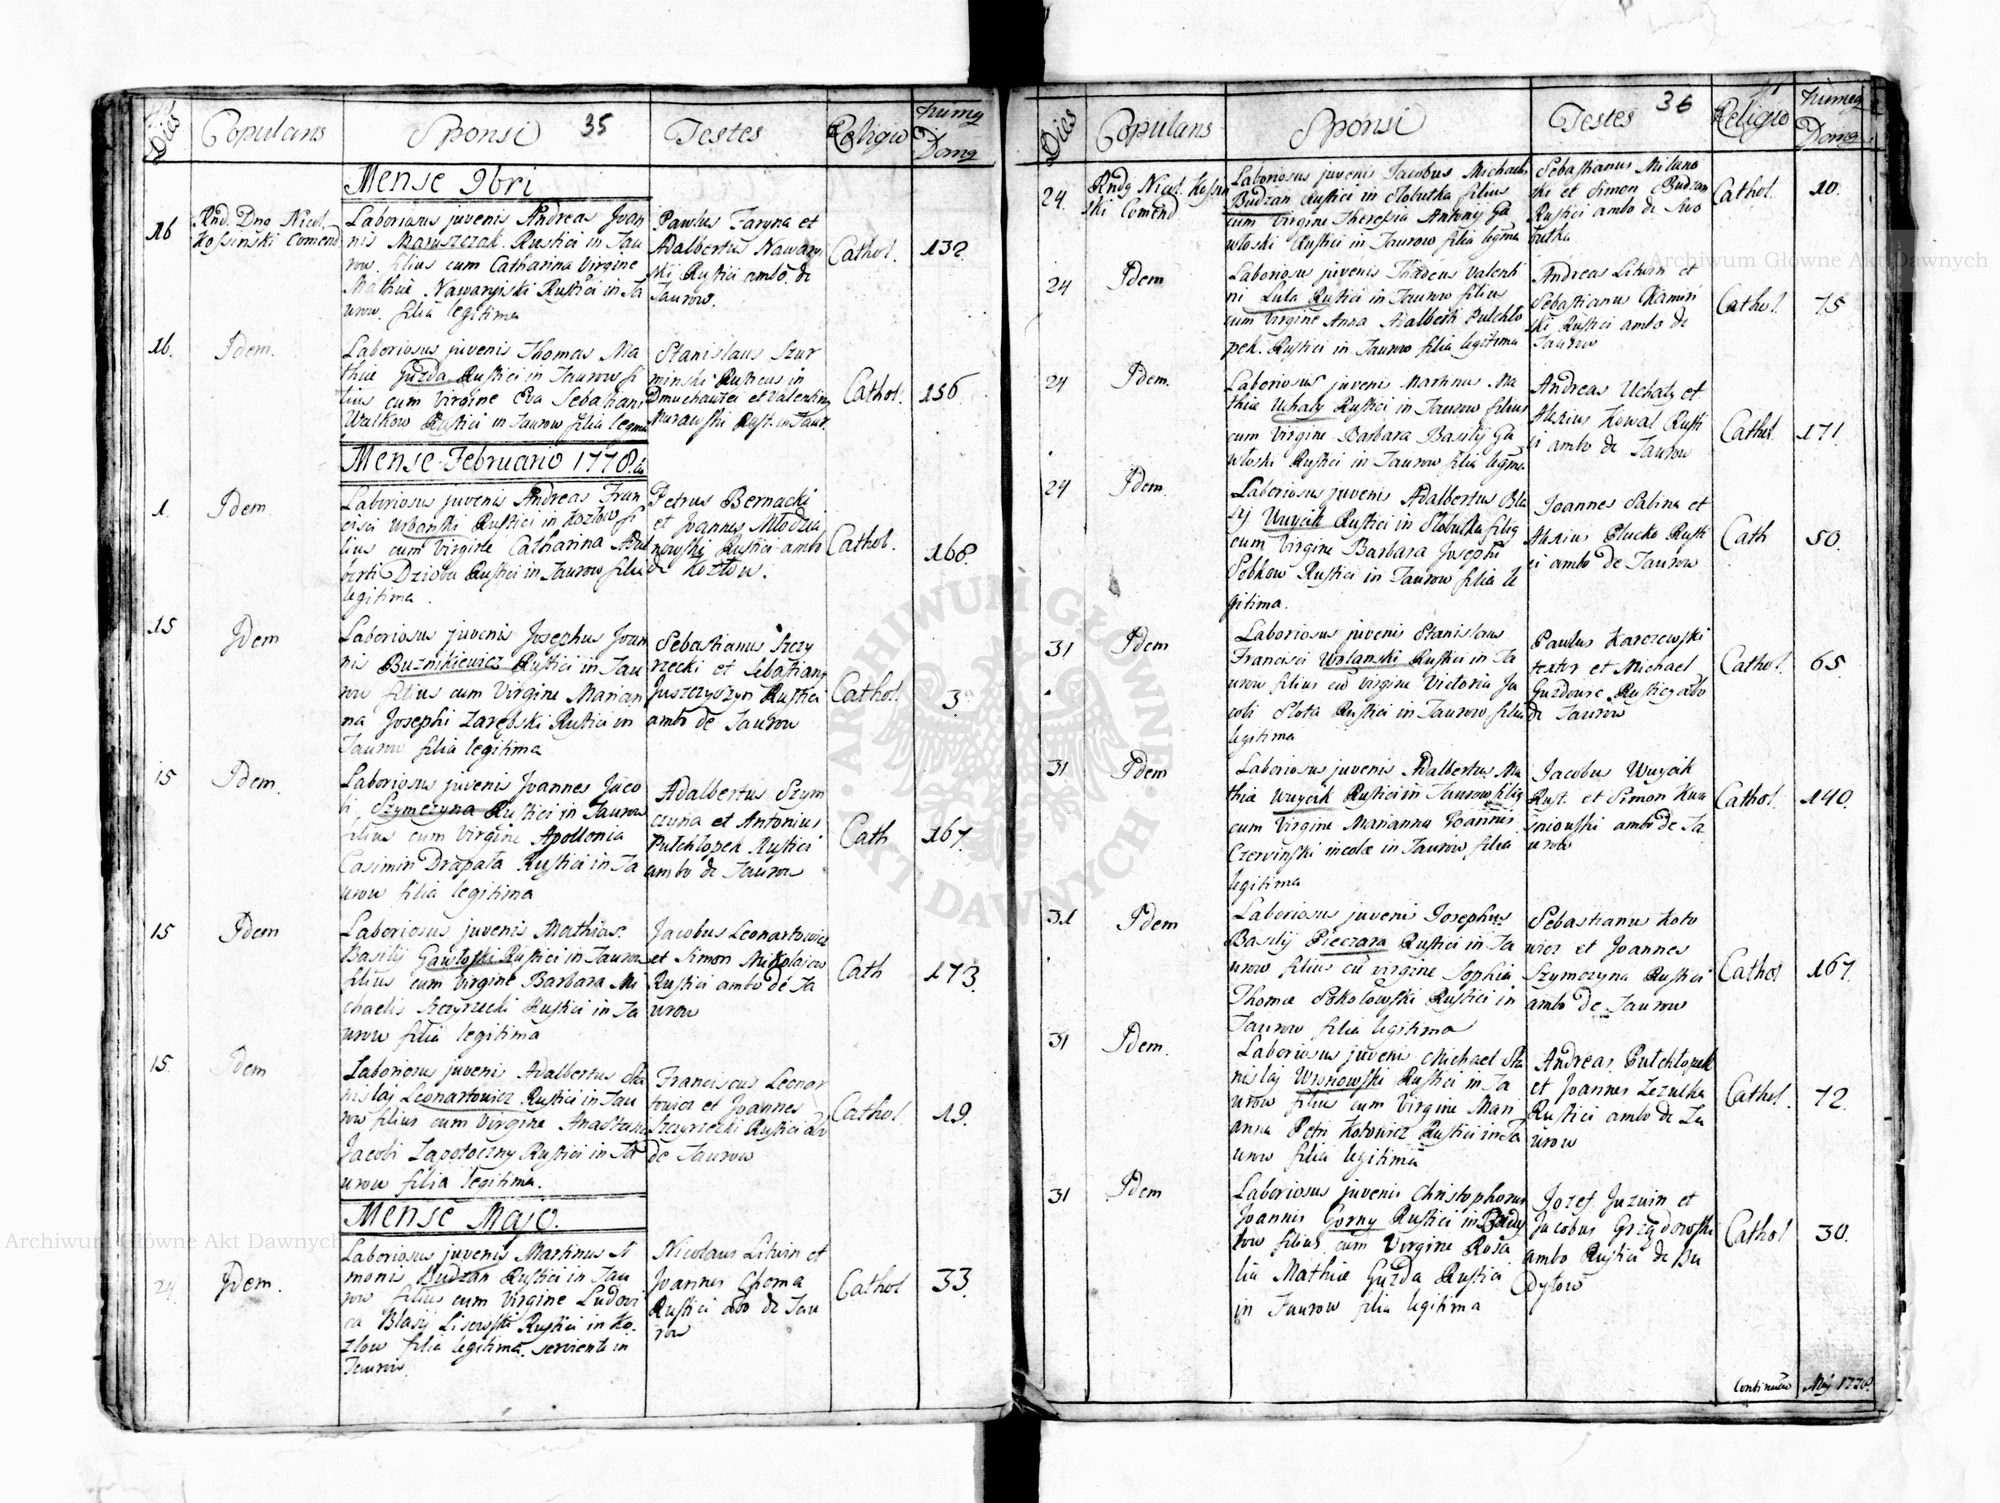 Dies
Copulans
Sponsi
35
Testes
Religio
Numq
Domq
Mense 9bri
16
Rnd. Dnq Nicol.
Kossinski Comend
Laboriosus juvenis Andreas Joan
nis Maruszczak Rustici in Tau
row. filius cum Catharina Virgine
Mathiæ Nawaryiski Rustici in Ta
urow. filia legitima
Pawlus Faryna et
Adalbertus Nawary
ski Rustici ambo de
Taurow.
Cathol.
132
16.
Idem.
Laboriosus juvenis Thomas Ma
thiæ Guzda Rustici in Taurow fi
lius cum Virgine Eva Sebastiani
Walkow Rustici in Taurow filia legma
Stanislaus Szur
minski Rusticus in
Dmuchawei et Valentinq
Murawski Rust. in Taur.
Cathol.
156
Mense Februario 1778
1.
Idem.
Laboriosus juvenis Andreas Fran
cisci Urbanski Rustici in Kozłow fi
lius cum Virgine Catharina Adal
berti Dzioba Rustici in Taurow filia
legitima.
Petrus Bernacki
et Joannes Młodzia
nowski Rustici ambo
de Kozłow.
Cathol.
168.
15
Idem
Laboriosus juvenis Josephus Joan
nis Buznikiewicz Rustici in Tau
row filius cum Virgine Marian
na Josephi Zarębski Rustici in
Taurow filia legitima
Sebastianus Szczy
rzecki et Sebastianq
Juszczyszyn Rustici
ambo de Taurow
Cathol.
3.
15
Idem.
Laboriosus juvenis Joannes Jaco
bi Szymczyna Rustici in Taurow
filius cum Virgine Apollonia
Casimiri Drapała Rustici in Ta
urow filia legitima
Adalbertus Szym
czyna et Antonius
Putchłopek Rustici
ambo de Taurow
Cath
167.
15
Idem
Laboriosus juvenis Mathias
Basilij Gawłoski Rustici in Taurow
filius cum Virgine Barbara Mi
chaelis Szczyrzecki Rustici in Ta
urow filia legitima
Jacobus Leonartowicz
et Simon Mikołaiow
Rustici ambo de Ta
urow
Cath
173.
15.
Idem
Laboriosus juvenis Adalbertus Sta
nislaj Leonartowicz Rustici in Tau
row filius cum Virgine Anastasia
Jacobi Zapotoczny Rustici in Ta
urow filia legitima.
Franciscus Leonar
towicz et Joannes
Szczyrzecki Rustici abo
de Taurow
Cathol.
19.
Mense Majo.
24
Idem.
Laboriosus juvenis Martinus Si
monis Budzan Rustici in Tau
row filius cum Virgine Ludovi
ca Blasij Lisowski Rustici in Ko
złow filia legitima. serviente in
Taurow
Nicolaus Litwin et
Joannes Choma
Rustici abo de Tau
row
Cathol
33.
Dies
Copulans
Sponsi
Testes
36
Religio
Numq
Domq
24.
Rndq Nicol. Kossin
ski Comend
Laboriosus juvenis Jacobus Michaelis
Budzan Rustici in Słobutka filius
cum Virgine Theresia Antony Ga
włoski Rustici in Taurow filia legma
Sebastianus Milano
ski et Simon Budzan
Rustici ambo de Swo
butka
Cathol.
10.
24
Idem
Laboriosus juvenis Thadeus Valenti
ni Lula Rustici in Taurow filius
cum Virgine Anna Adalberti Putchło
pek. Rustici in Taurow filia legitima
Andreas Litwin et
Sebastianus Kamiń
ski Rustici ambo de
Taurow
Cathol.
75
24
Idem.
Laboriosus juvenis Martinus Ma
thiæ Uchaly Rustici in Taurow filius
cum Virgine Barbara Basilij Ga
włoski Rustici in Taurow filia legma
Andreas Uchaly et
Alexius Kowal Rusti
ci ambo de Taurow
Cathol.
171.
24
Idem.
Laboriosus juvenis Adalbertus Bla
sij Wuycik Rustici in Słobutka filiq
cum Virgine Barbara Josephi
Sobkow Rustici in Taurow filia le
gitima.
Joannes Salina et
Alexius Plucko Rusti
ci ambo de Taurow
Cath
50.
31
Idem
Laboriosus juvenis Stanislaus
Francisci Wolanski Rustici in Ta
urow filius cū Virgine Victoria Ja
cobi Słota Rustici in Taurow filia
legitima
Paulus Karczewski
textor et Michael
Guzdowic Rusticy abo
de Taurow
Cathol.
65.
31
Idem
Laboriosus juvenis Adalbertus Ma
thiæ Wuycik Rustici in Taurow filiq
cum Virgine Marianna Joannis
Czerwinski incolæ in Taurow filia
legitima
Jacobus Wuycik
Rust. et Simon Kwa
sniowski ambo de Ta
urow
Cathol.
140.
31
Idem
Laboriosus juvenis Josephus
Basilij Pieczara Rustici in Ta
urow filius cū virgine Sophia
Thomæ Sokołowski Rustici in
Taurow filia legitima
Sebastianus Koto
wicz et Joannes
Szymczyna Rustici
ambo de Taurow
Cathol
167.
31
Idem.
Laboriosus juvenis Michael Sta
nislaj Wronowski Rustici in Ta
urow filius cum Virgine Mari
anna Petri Kotowicz Rustici in Ta
urow filia legitima
Andreas Putchłopek
et Joannes Zezulka
Rustici ambo de Ta
urow
Cathol.
72.
31
Idem
Laboriosus juvenis Christophorus
Joannis Gorny Rustici in Budy
łow filius cum Virgine Rosa
lia Mathiæ Guzda Rustici
in Taurow filia legitima
Jozef Juzwin et
Jacobus Grzędowski
ambo Rustici de Bu
dyłow
Cathol
30.
Continuatio Maij 1778.
Archiwum Główne Akt Dawnych
Archiwum Główne Akt Dawnych
ARCHIWUM GŁÓWNE AKT DAWNYCH